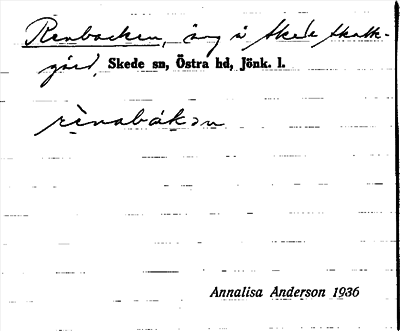 Renbacken, äng i Skede Skatte-
gård, Skede sn, Östra hd, Jönk. l.
rènabákɔn
Annalisa Anderson 1936